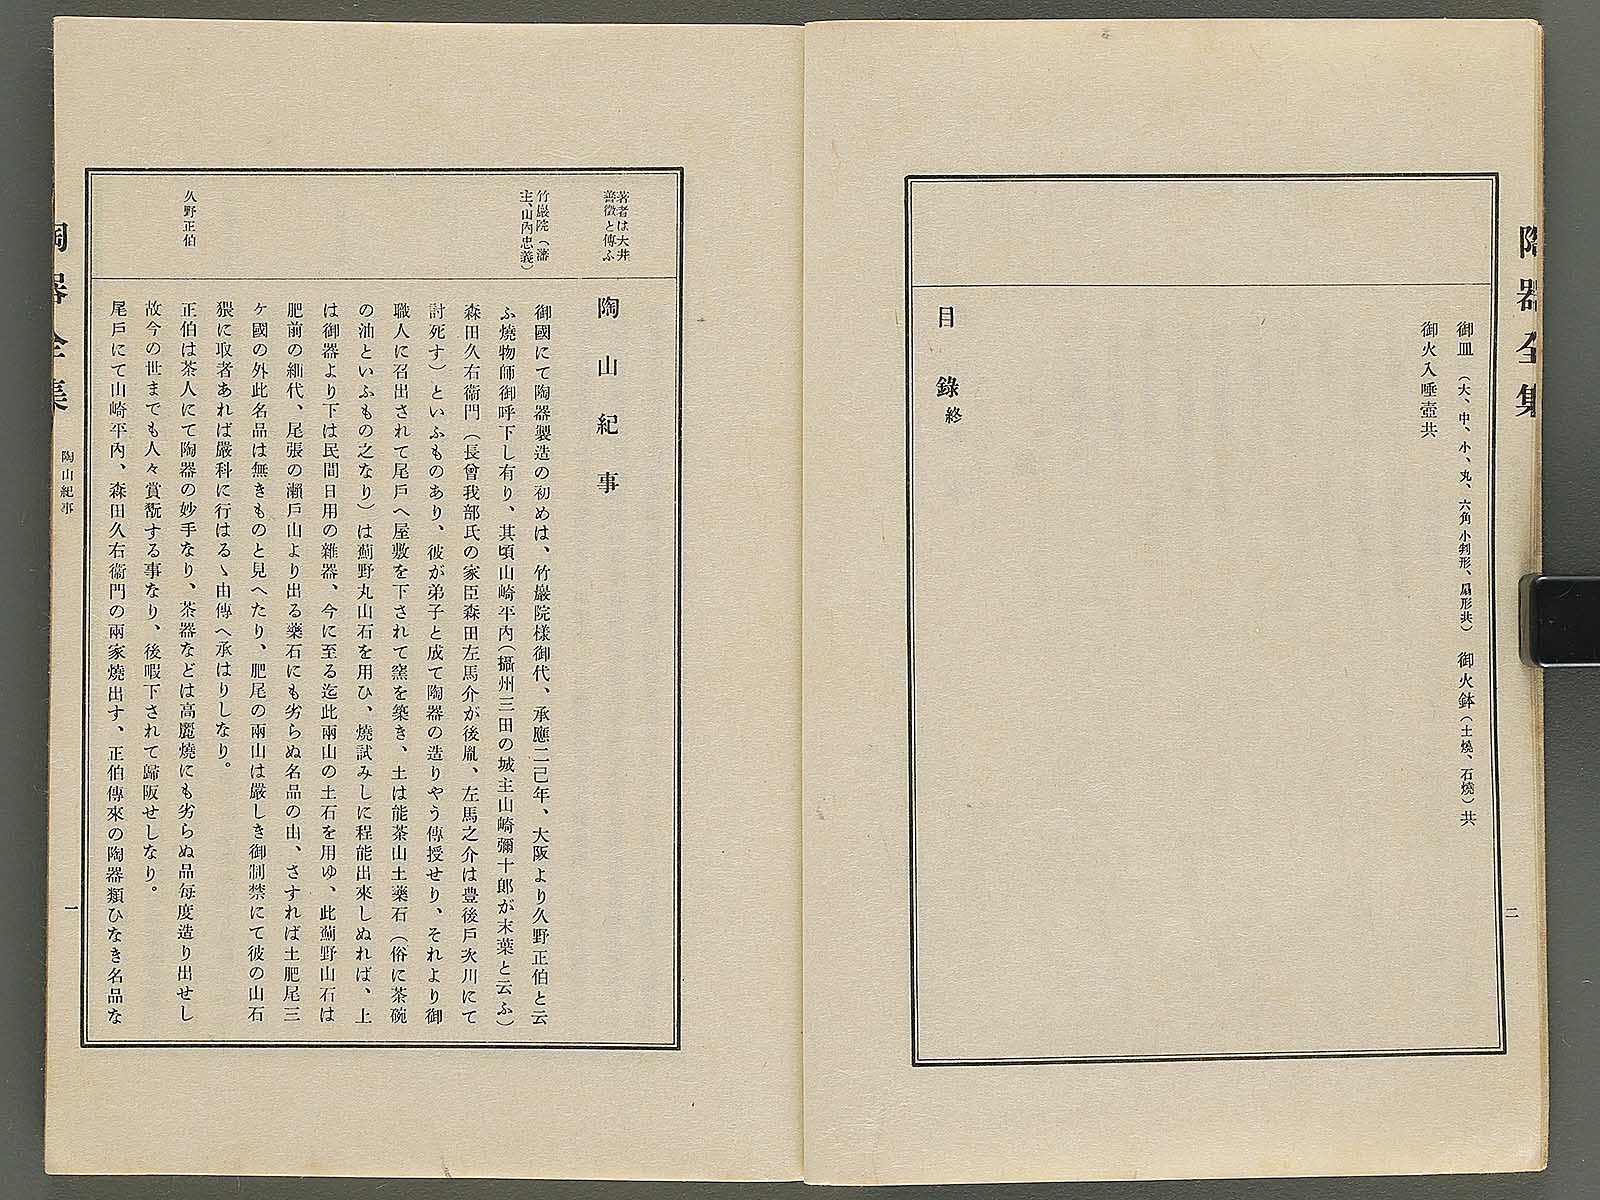 陶器全集
二
御皿(大、中、小、丸、六角小判形、扇形共) 御火鉢(土燒、石燒)共
御火入唾壺共
目錄終
著者は大井
善徴と傳ふ
竹巖院(藩
主、山內忠義)
久野正伯
陶山紀事
御國にて陶器製造の初めは、竹巖院樣御代、承應二己年、大阪より久野正伯と云
ふ燒物師御呼下し有り、其頃山崎平內(攝州三田の城主山崎彌十郎が末葉と云ふ)
森田久右衞門(長曾我部氏の家臣森田左馬介が後胤、左馬之介は豊後戶次川にて
討死す)といふものあり、彼が弟子と成て陶器の造りやう傳授せり、それより御
職人に召出されて尾戶へ屋敷を下されて窯を築き、土は能茶山土藥石(俗に茶碗
の油といふもの之なり)は薊野丸山石を用ひ、燒試みしに程能出來しぬれば、上
は御器より下は民間日用の雜器、今に至る迄此兩山の土石を用ゆ、此薊野山石は
肥前の細代、尾張の瀨戶山より出る藥石にも劣らぬ名品の由、さすれば土肥尾三
ケ國の外此名品は無きものと見へたり、肥尾の兩山は嚴しき御制禁にて彼の山石
猥に取者あれば嚴科に行はるゝ由傳へ承はりしなり。
正伯は茶人にて陶器の妙手なり、茶器などは高麗燒にも劣らぬ品每度造り出せし
故今の世までも人々賞翫する事なり、後暇下されて歸阪せしなり。
尾戶にて山崎平內、森田久右衞門の兩家燒出す、正伯傳來の陶器類ひなき名品な
陶器全集
陶山紀事
一